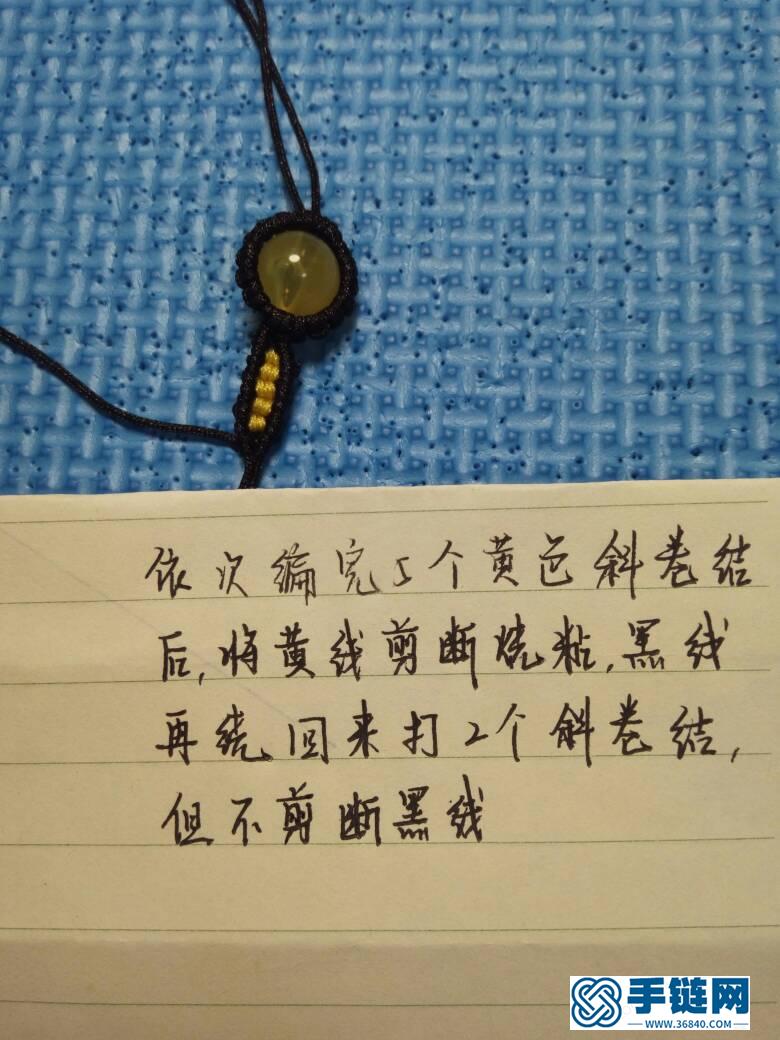 依次编完5个黄色斜卷结
后,将黄线剪断烧粘,黑线
再绕回来打2个斜卷结,
但不剪断黑线
手链网
WWW.36840.COM